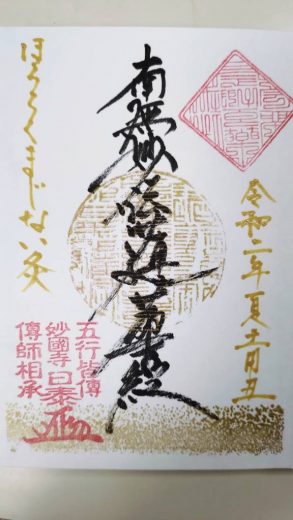 令和二年夏土用丑
南無妙法蓮華経
ほうろくまじない灸
五行皆傳
妙國寺日泰
傳師相承